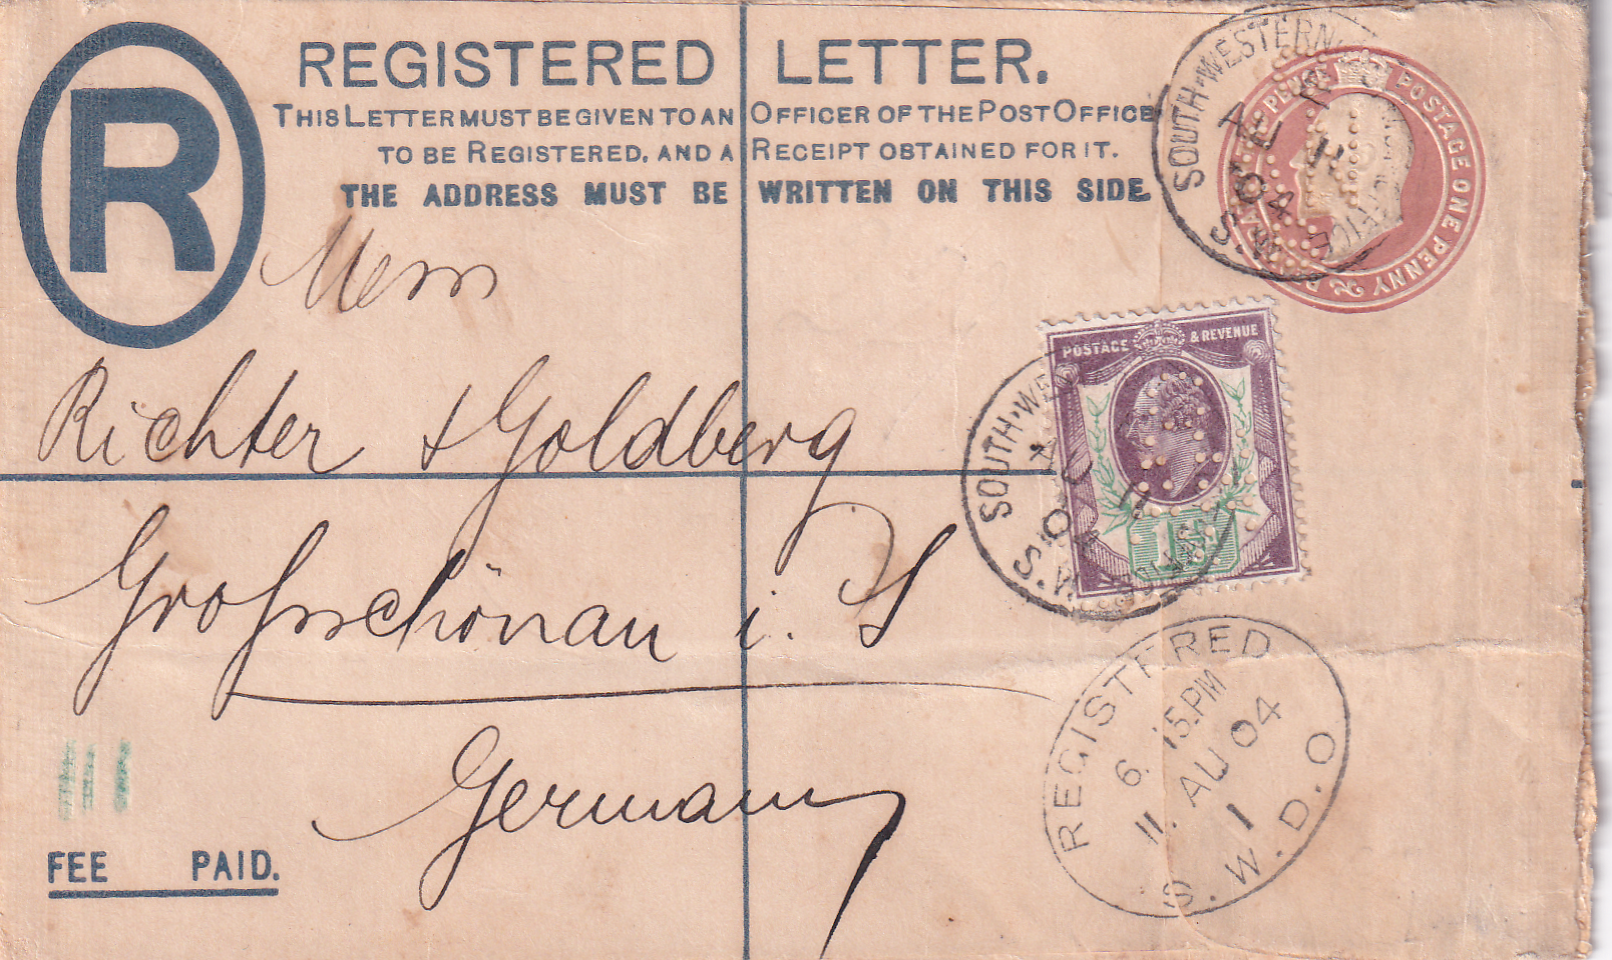 R
REGISTERED LETTER.
THIS LETTER MUST BE GIVEN TO AN OFFICER OF THE POST OFFICE
TO BE REGISTERED, AND A RECEIPT OBTAINED FOR IT.
THE ADDRESS MUST BE WRITTEN ON THIS SIDE.
SOUTH·WESTERN
AU 11
04
S.W.
POSTAGE ONE PENNY
Messrs
Richter & Goldberg
Grossschönau i. S
Germany
POSTAGE & REVENUE
SOUTH·WE
11
04
S.W.
REGISTERED
6. 15.PM
11. AU 04
1
S.W.D.O
FEE PAID.